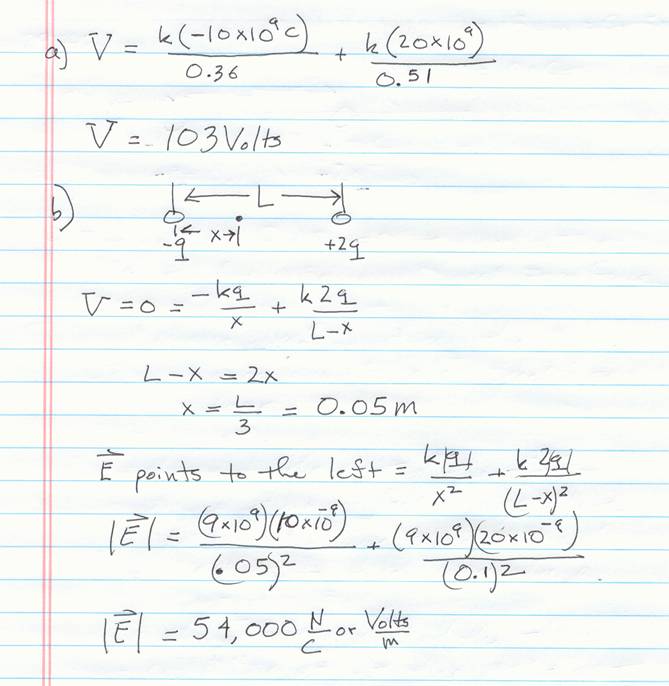 a) V = k(-10x10⁹C)/0.36 + k(20x10⁹)/0.51
V = 103 Volts
b) L
x
-q +2q
V = 0 = -kq/x + k2q/(L-x)
L-x = 2x
x = L/3 = 0.05 m
E⃗ points to the left = k|q|/x² + k2|q|/(L-x)²
|E⃗| = (9x10⁹)(10x10⁻⁹)/(.05)² + (9x10⁹)(20x10⁻⁹)/(0.1)²
|E⃗| = 54,000 N/C or Volts/m